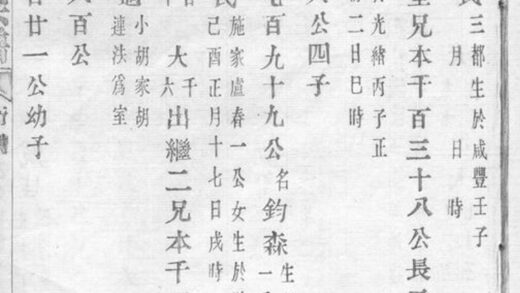 三都生於咸豐壬子
月日時
兄本千百三十八公長
光緒丙子正
二日巳時
公四子
百九十九公名鈞森生一
施家盧春一公女生於
己酉正月十七日戌時
大千六出繼二兄本千
小胡家胡
連法爲室
百公
廿一公幼子